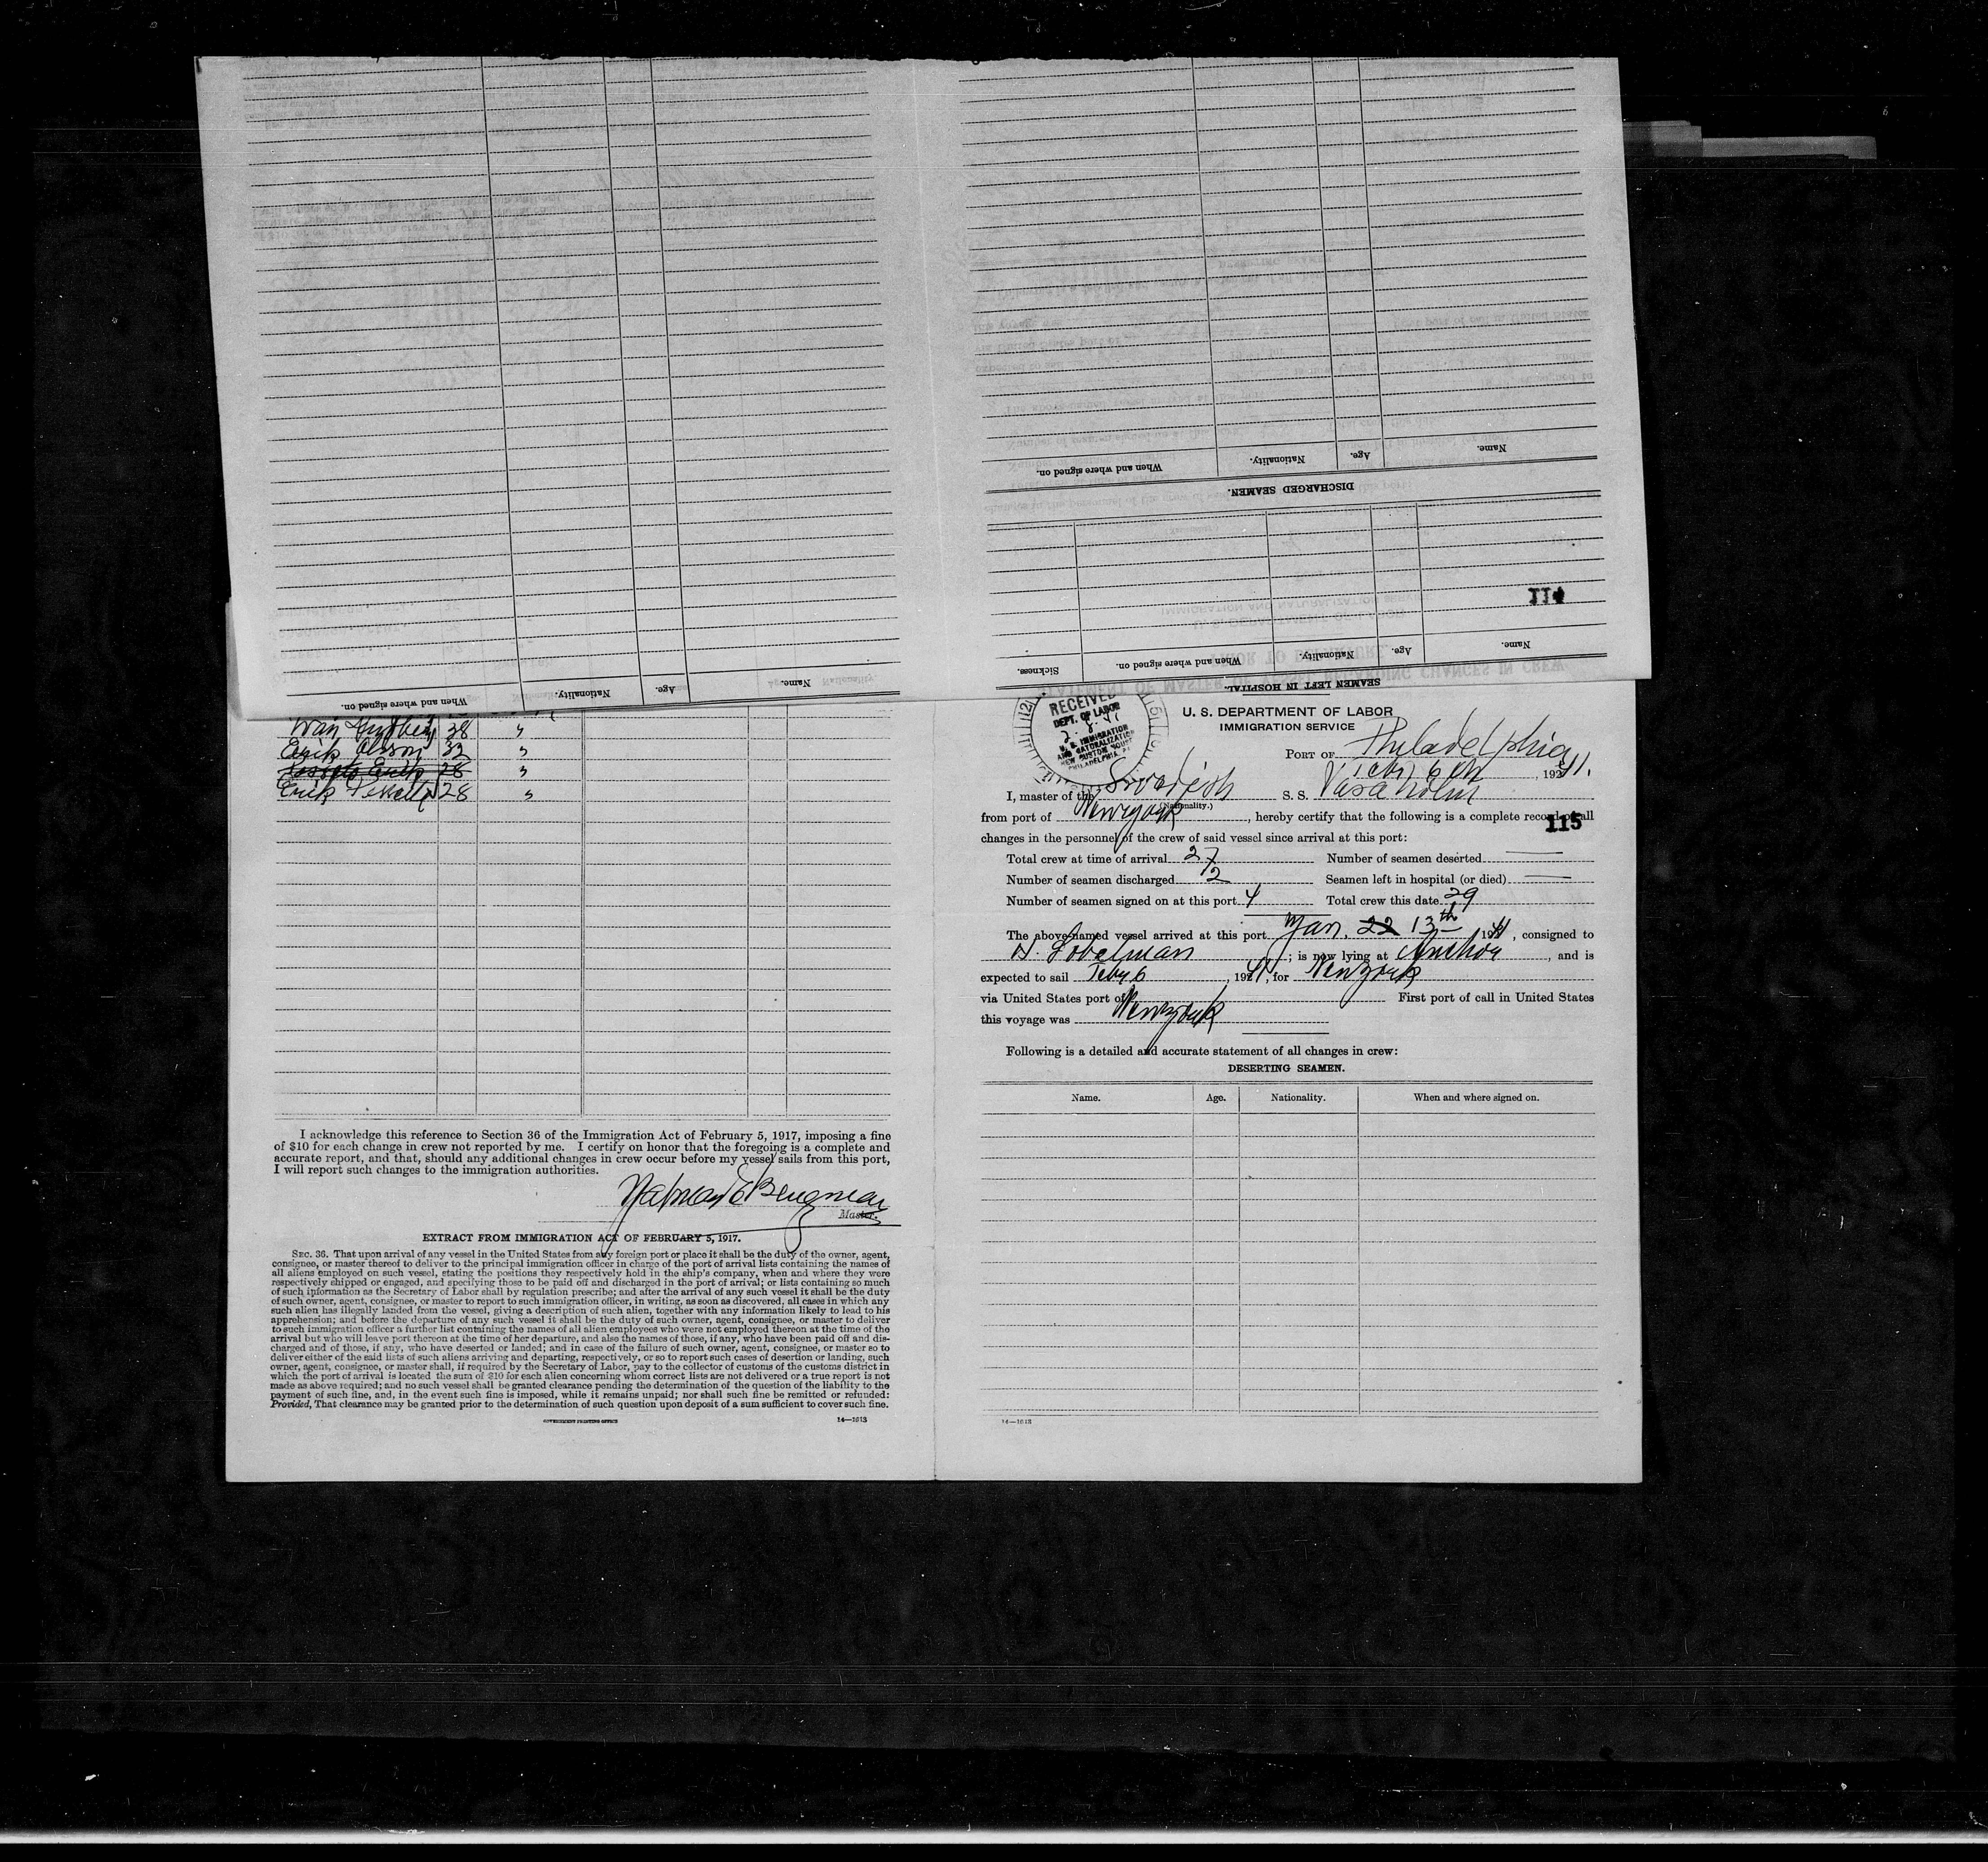 When and where signed on.
Nationality.
Age.
Name.
When and where signed on.
Nationality.
Age.
Name.
DISCHARGED SEAMEN.
114
Sickness.
When and where signed on.
Nationality.
Age.
Name.
SEAMEN LEFT IN HOSPITAL.
Ivan 28 "
Erik Olsson 32 "
Erik 28 "
Erik 28 "
I acknowledge this reference to Section 36 of the Immigration Act of February 5, 1917, imposing a fine
of $10 for each change in crew not reported by me. I certify on honor that the foregoing is a complete and
accurate report, and that, should any additional changes in crew occur before my vessel sails from this port,
I will report such changes to the immigration authorities.
Master.
EXTRACT FROM IMMIGRATION ACT OF FEBRUARY 5, 1917.
SEC. 36. That upon arrival of any vessel in the United States from any foreign port or place it shall be the duty of the owner, agent,
consignee, or master thereof to deliver to the principal immigration officer in charge of the port of arrival lists containing the names of
all aliens employed on such vessel, stating the positions they respectively hold in the ship's company, when and where they were
respectively shipped or engaged, and specifying those to be paid off and discharged in the port of arrival; or lists containing so much
of such information as the Secretary of Labor shall by regulation prescribe; and after the arrival of any such vessel it shall be the duty
of such owner, agent, consignee, or master to report to such immigration officer, in writing, as soon as discovered, all cases in which any
such alien has illegally landed from the vessel, giving a description of such alien, together with any information likely to lead to his
apprehension; and before the departure of any such vessel it shall be the duty of such owner, agent, consignee, or master to deliver
to such immigration officer a further list containing the names of all alien employees who were not employed thereon at the time of the
arrival but who will leave port thereon at the time of her departure, and also the names of those, if any, who have been paid off and dis-
charged and of those, if any, who have deserted or landed; and in case of the failure of such owner, agent, consignee, or master so to
deliver either of the said lists of such aliens arriving and departing, respectively, or so to report such cases of desertion or landing, such
owner, agent, consignee, or master shall, if required by the Secretary of Labor, pay to the collector of customs of the customs district in
which the port of arrival is located the sum of $10 for each alien concerning whom correct lists are not delivered or a true report is not
made as above required; and no such vessel shall be granted clearance pending the determination of the question of the liability to the
payment of such fine, and, in the event such fine is imposed, while it remains unpaid; nor shall such fine be remitted or refunded:
Provided, That clearance may be granted prior to the determination of such question upon deposit of a sum sufficient to cover such fine.
GOVERNMENT PRINTING OFFICE 14—1913
RECEIVED
DEPT. OF LABOR
2. 8. 41
U. S. IMMIGRATION
AND NATURALIZATION
NEW CUSTOM HOUSE
PHILADELPHIA PA
U. S. DEPARTMENT OF LABOR
IMMIGRATION SERVICE
PORT OF Philadelphia
Feby 6 th, 1941.
I, master of the Swedish S. S. Vasaholm
(Nationality.)
from port of Newyork, hereby certify that the following is a complete record of all
115
changes in the personnel of the crew of said vessel since arrival at this port:
Total crew at time of arrival 27 Number of seamen deserted —
Number of seamen discharged 2 Seamen left in hospital (or died) —
Number of seamen signed on at this port 4 Total crew this date 29
The above-named vessel arrived at this port Jan. 22 13th 1941, consigned to
; is now lying at Anchor, and is
expected to sail Feby 6, 1941, for Newyork
via United States port of First port of call in United States
this voyage was Newyork
Following is a detailed and accurate statement of all changes in crew:
DESERTING SEAMEN.
Name. Age. Nationality. When and where signed on.
14—1913